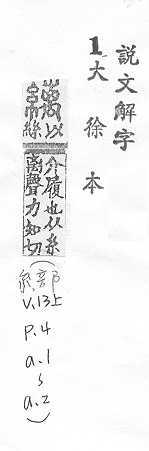 説文解字
1.大徐本
縭 以絲
介履也从糸
离聲力知切
(糸部
V.13上
P.4
a.1
s
a.2)